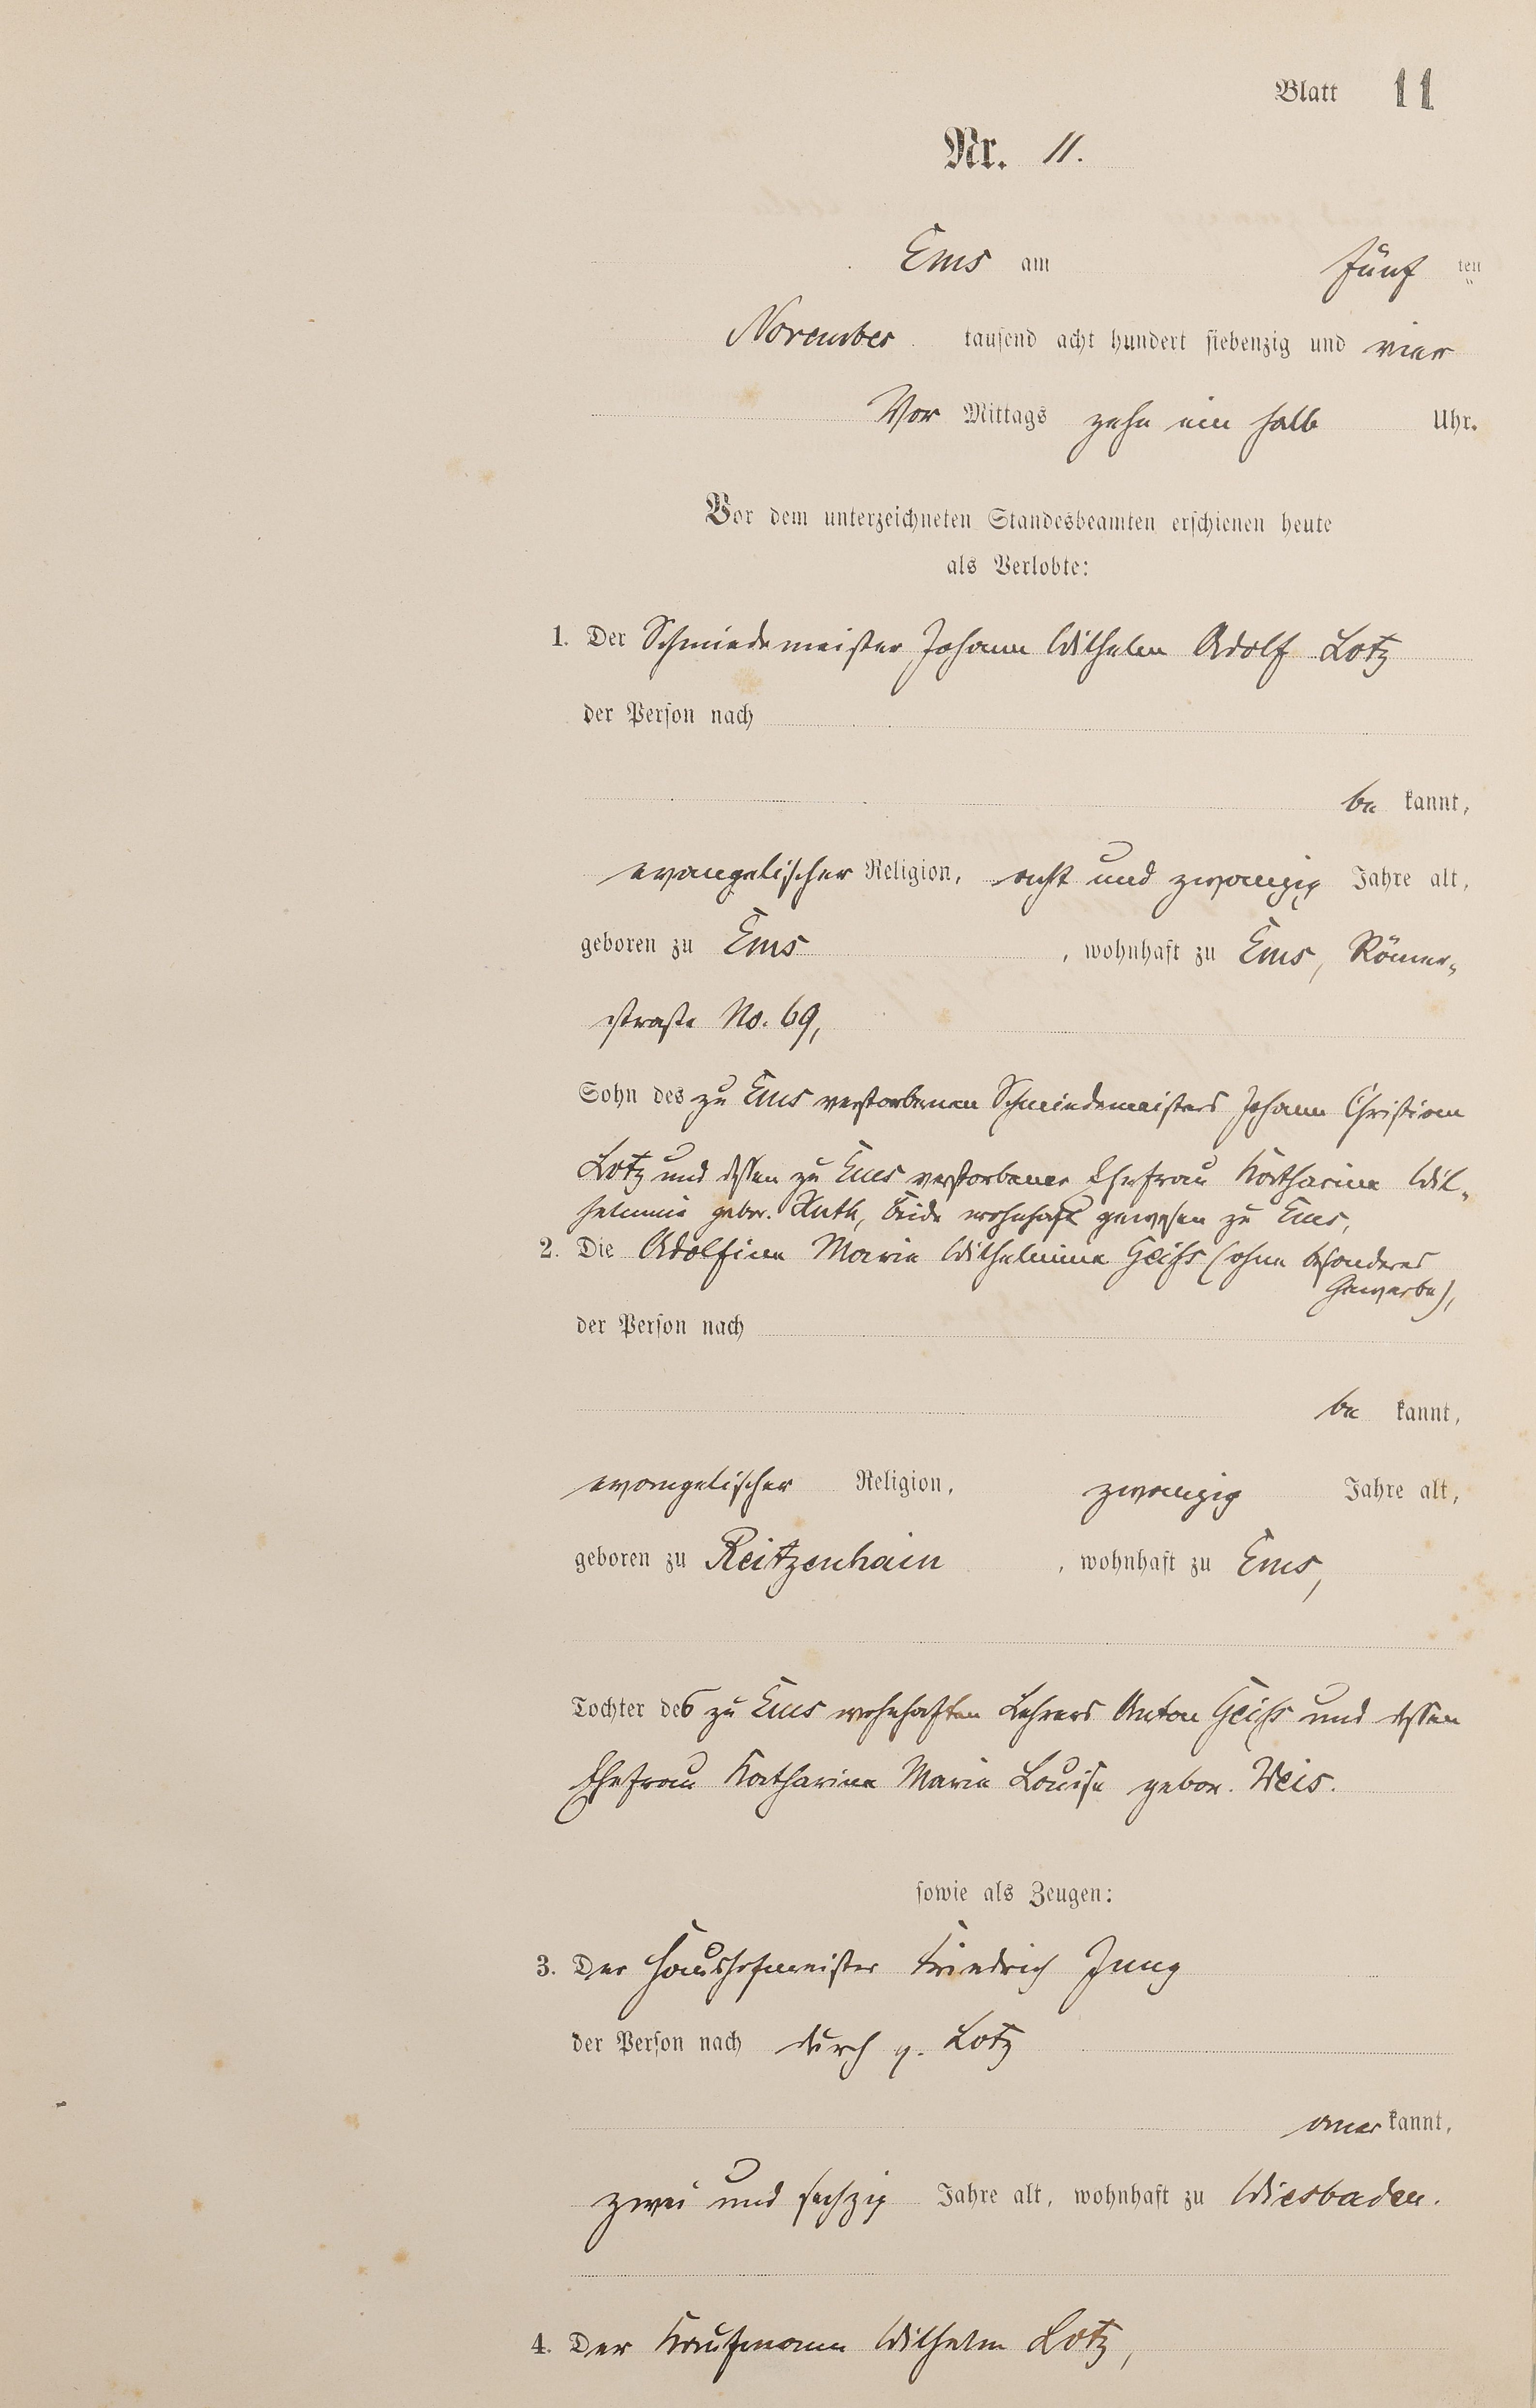 Blatt 11
Nr. 11.
Ems am fünf ten
November tausend acht hundert siebenzig und vier
Vor Mittags zehn ein halb Uhr.
Vor dem unterzeichneten Standesbeamten erschienen heute
als Verlobte:
1. Der Schmiedemeister Johann Wilhelm Adolf Lotz
der Person nach
be kannt,
evangelischer Religion, acht und zwanzig Jahre alt,
geboren zu Ems, wohnhaft zu Ems, Römer-
straße No. 69,
Sohn des zu Ems verstorbenen Schmiedemeisters Johann Christian
Lotz und dessen zu Ems verstorbener Ehefrau Katharine Wil-
helmine gebor. Huth, beide wohnhaft gewesen zu Ems,
2. Die Adolfine Marie Wilhelmine Geiß (ohne besonderes
Gewerbe),
der Person nach
be kannt,
evangelischer Religion, zwanzig Jahre alt,
geboren zu Reitzenhain, wohnhaft zu Ems,
Tochter des zu Ems wohnhaften Lehrers Anton Geiß und dessen
Ehefrau Katharine Marie Louise gebor. Weis.
sowie als Zeugen:
3. Der Haushofmeister Friedrich Jung
der Person nach durch p. Lotz
aner kannt,
zwei und sechzig Jahre alt, wohnhaft zu Wiesbaden.
4. Der Kaufmann Wilhelm Lotz,